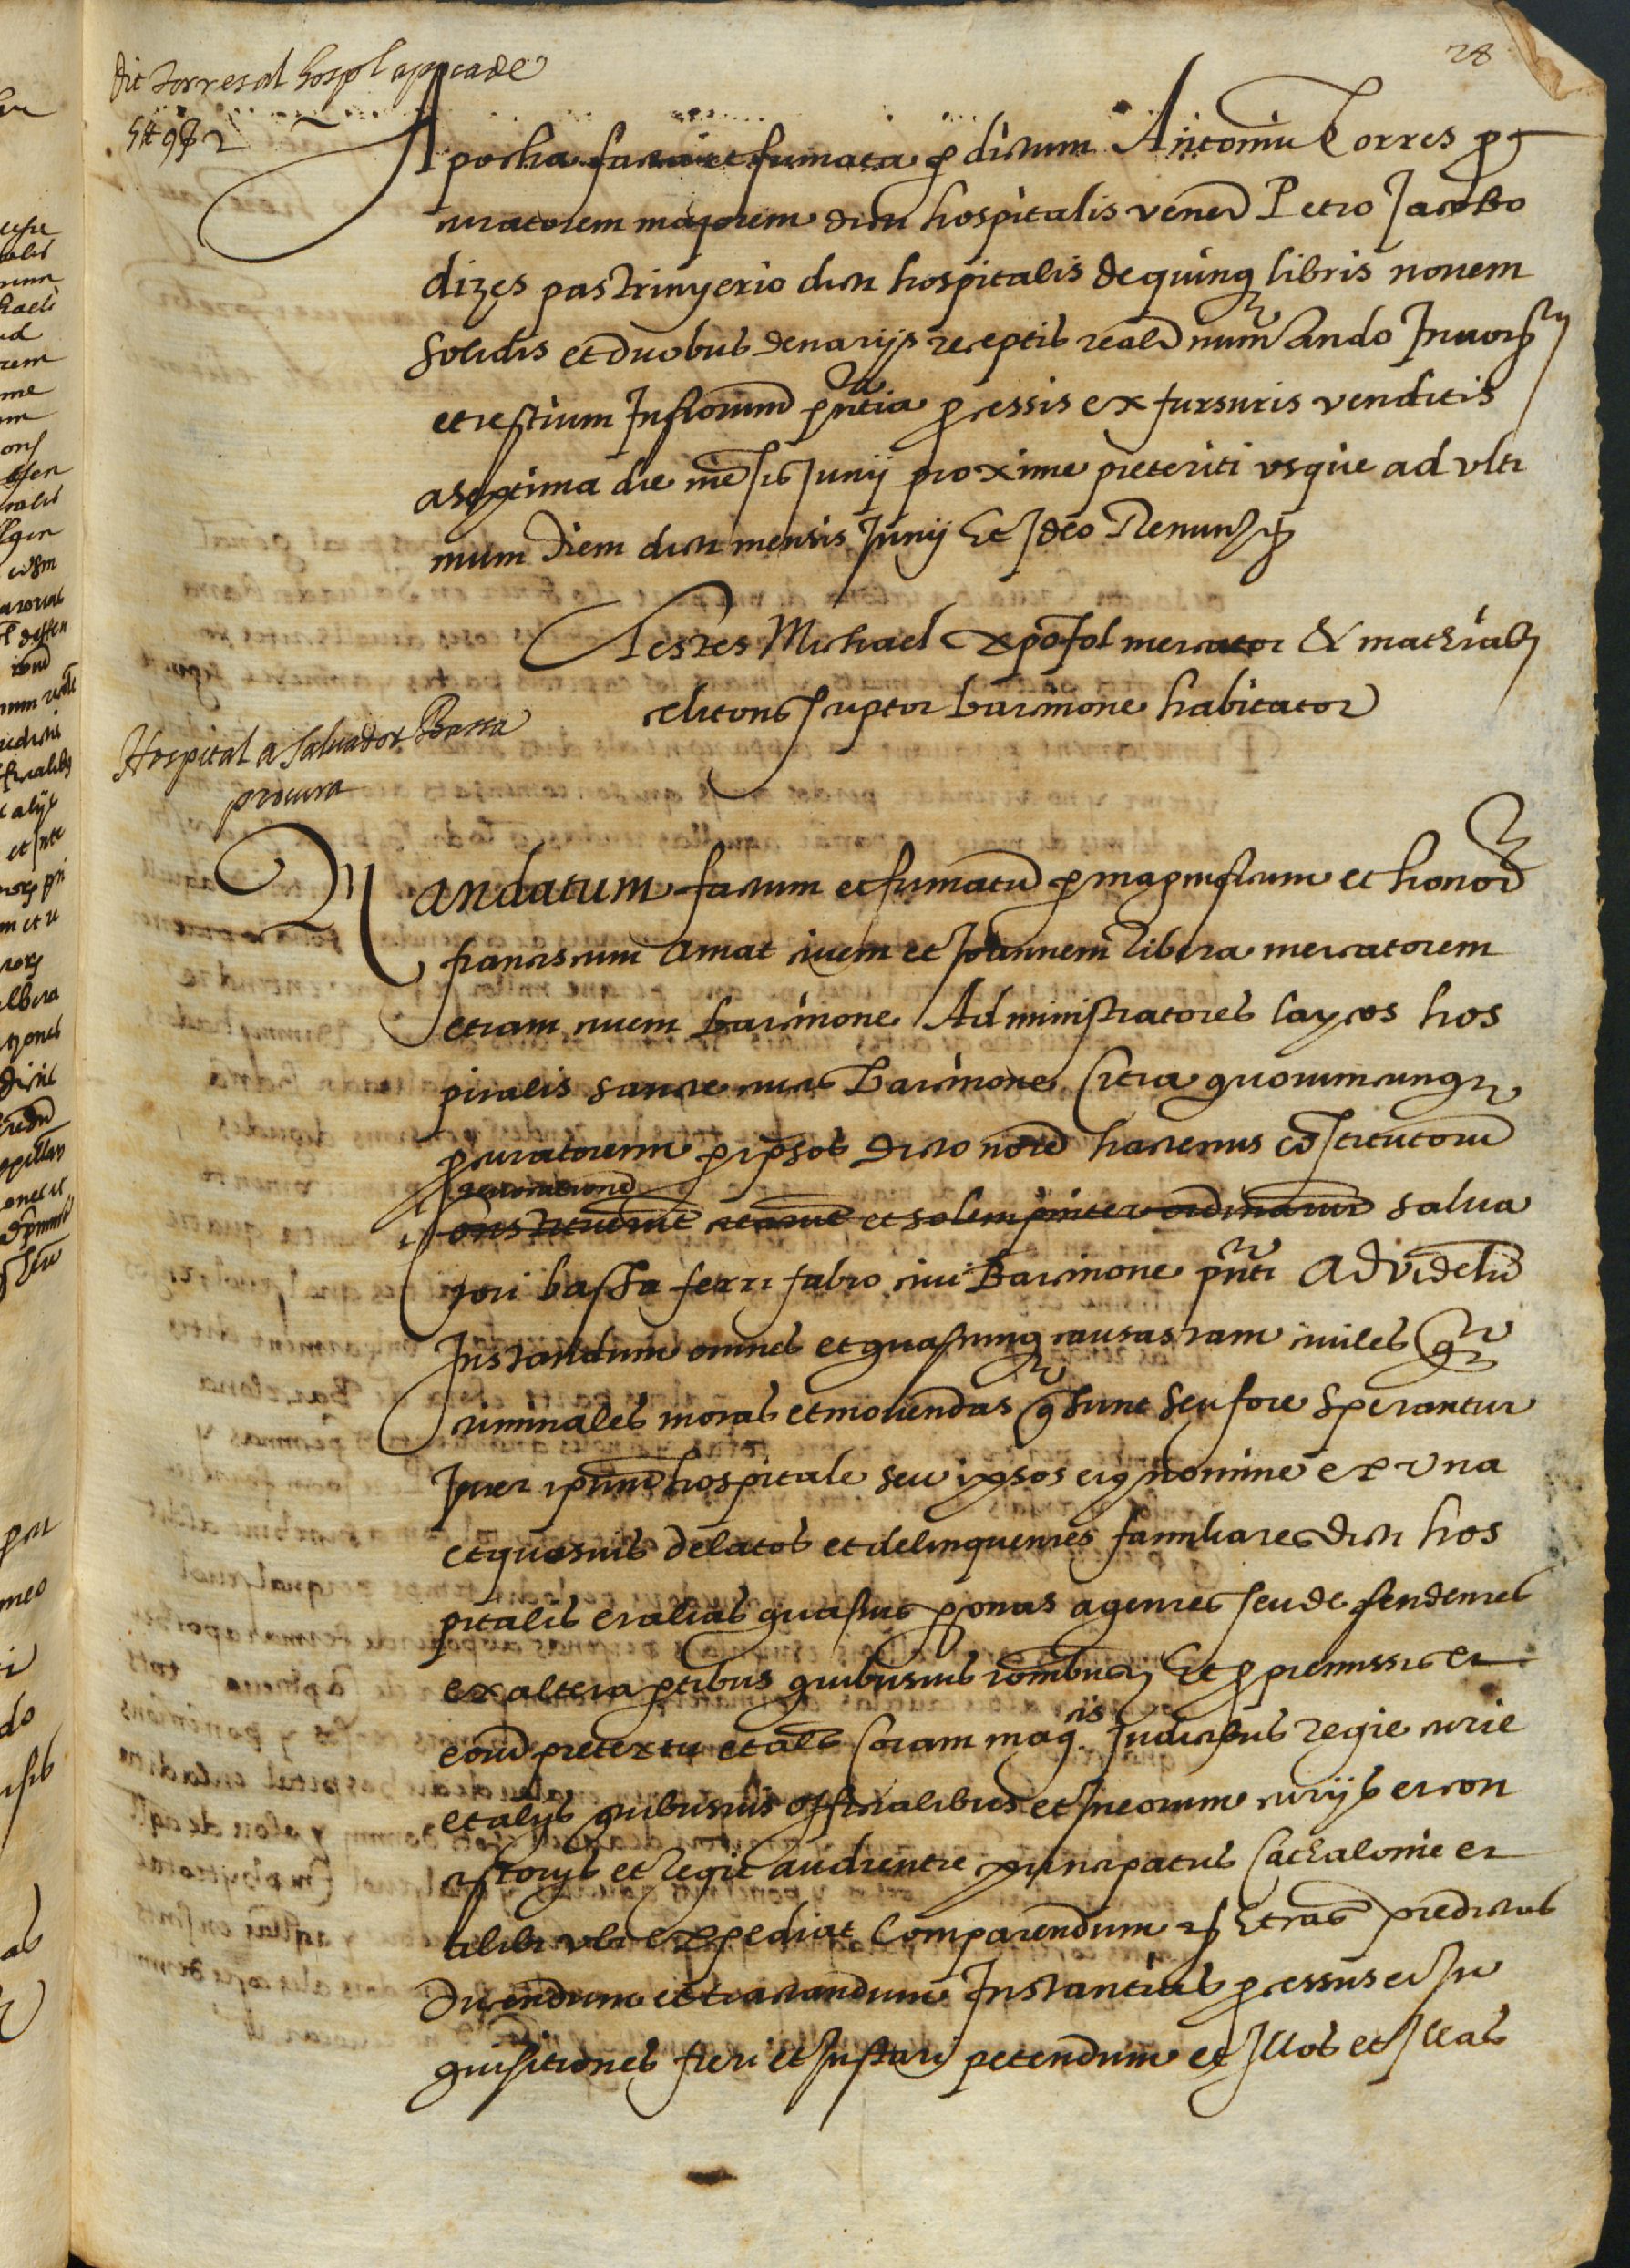 28
dit torres al hospl apocade
5 ₶ 9 ẞ 2
Apocha facta et firmata p dictum Antoniu Torres pro
curatorem majorem dicti hospitalis venen Petro Jacobo
dizes pastrinyerio dicti hospitalis de quinq libris novem
solidis et duobus denarijs receptis reali numerando In notrij
et testium Infrorum pntia processis ex fursuris venditis
a septima die mesis Junij proxime preteriti usque ad ulti
mum diem dicti mensis Junij Et Ideo Renun
Testes Michael xpofol mercator & mathias
clitons scriptor barcinone habitator
Hospital a salvador Bassa
procura
Mandatum factum et firmatu p magnificum et honor
franciscum Amat civem et Joannem ribera mercatorem
etiam civem barcinone Administratores laycos hos
pitalis sancte crucis Barcinone Citra quorumcunq
procuratorum p ipsos dicto noie hactenus costitutorum
revocationem
constituerunt et solempniter ordinarunt salva
tori bassa ferri fabro civi Barcinone pnti Ad videlicet
Instandum omnes et quascunq causas tam civiles q
criminales motas et movendas q sunt seu fore sperantur
Inter ipsum hospitale seu ipsos eiq nomine ex una
et quosvis delatos et delinquentes familiares dicti hos
pitalis et alias quasvis psonas agentes seu defendentes
ex altera ptibus quibusvis Et p premissis et
eoru pretextu et als Coram magcis Judicibus regie curie
et alijs quibusvis officialibus et In eorum curijs et con
sistorijs et Regie audientie principatus Cathalonie et
alibi ubi expediat Comparendum Et causas predictas
Ducendum et tractandum Instantias processus et In
quisitiones fieri et Instari petendum et Illos et Illas